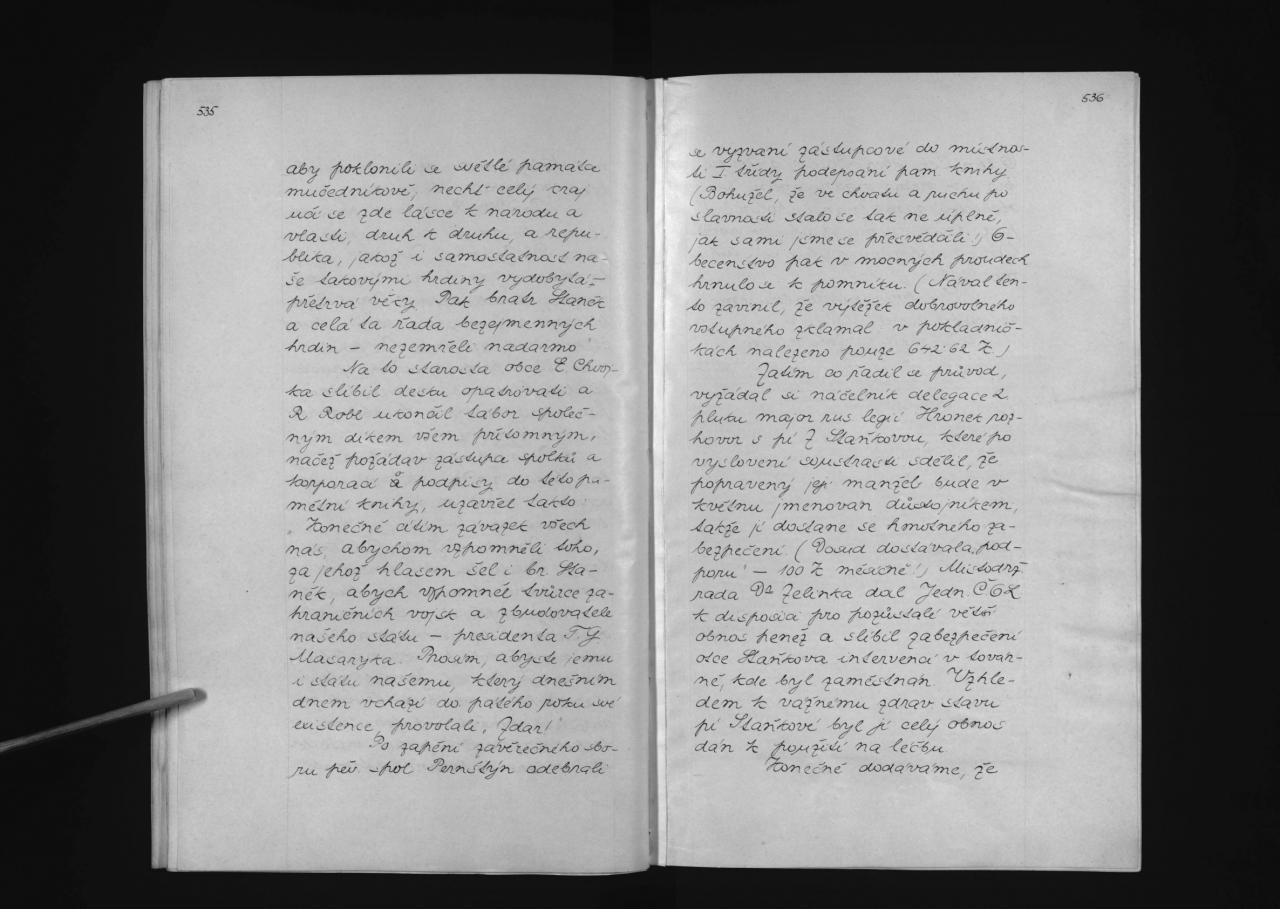 535
aby poklonili se světlé památce
mučedníkově, nechť celý kraj
učí se zde lásce k národu a
vlasti, druh k druhu, a repu-
blika, jakož i samostatnost na-
še takovými hrdiny vydobytá –
přetrvá věky. Pak bratr Staněk
a celá ta řada bezejmenných
hrdin – nezemřeli nadarmo
Na to starosta obce E. Chvoj-
ka slíbil desku opatrovati a
R Robl ukončil tábor společ-
ným díkem všem přítomným,
načež požádav zástupce spolků a
korporací o podpisy do této pa-
mětní knihy, uzavřel takto:
"Konečně cítím závazek všech
nás, abychom vzpomněli toho,
za jehož hlasem šel i br. Sta-
něk, abych vzpomněl tvůrce za-
hraničních vojsk a zbudovatele
našeho státu – presidenta T. G.
Masaryka. Prosím, abyste jemu
i státu našemu, který dnešním
dnem vchází do pátého roku své
existence, provolali: Zdar!"
Po zapění závěrečného sbo-
ru pěv. spol Pernštýn odebrali
536
se vyzvaní zástupcové do místnos-
ti I třídy podepsání pam knihy
(Bohužel, že ve chvatu a ruchu po
slavnosti stalo se tak ne úplně,
jak sami jsme se přesvědčili!) O-
becenstvo pak v mocných proudech
hrnulo se k pomníku. (Nával ten-
to zavinil, že výtěžek dobrovolného
vstupného zklamal: v pokladnič-
kách nalezeno pouze 642.62 K.)
Zatím co řadil se průvod,
vyžádal si náčelník delegace 2
pluku major rus legií Hronek roz-
hovor s pí Z Staňkovou, které po
vyslovení soustrasti sdělil, že
popravený její manžel bude v
květnu jmenován důstojníkem,
takže jí dostane se hmotného za-
bezpečení. (Dosud dostávala "pod-
poru" – 100 K měsíčně!) Místodrž.
rada Dr Zelinka dal Jedn. ČOL
k disposici pro pozůstalé větší
obnos peněz a slíbil zabezpečení
otce Staňkova intervencí v továr-
ně, kde byl zaměstnán. Vzhle-
dem k vážnému zdrav stavu
pí Staňkové byl jí celý obnos
dán k použití na léčbu.
Konečně dodáváme, že